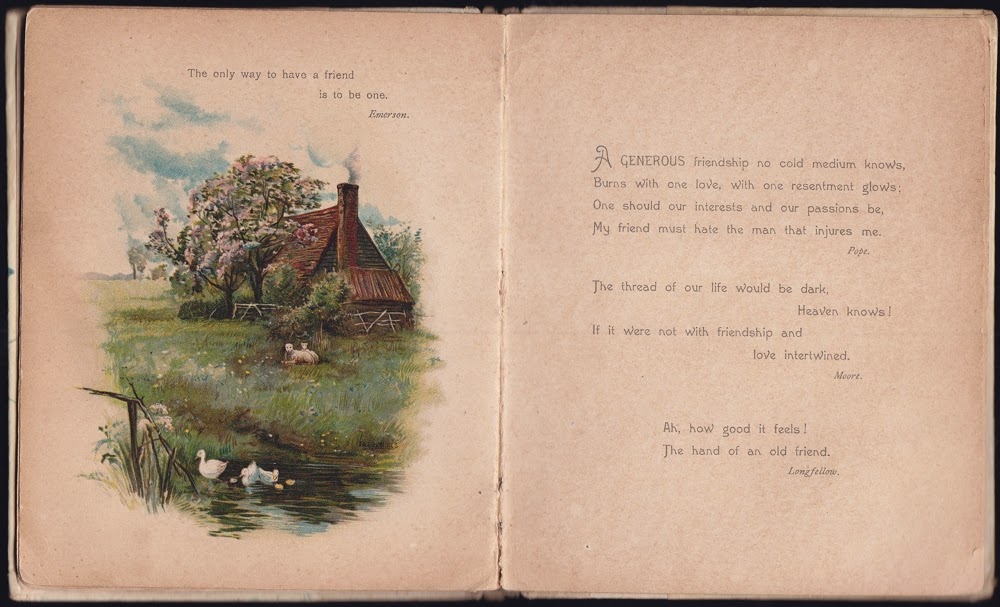 The only way to have a friend
is to be one.
Emerson.
A GENEROUS friendship no cold medium knows,
Burns with one love, with one resentment glows;
One should our interests and our passions be,
My friend must hate the man that injures me.
Pope.
The thread of our life would be dark,
Heaven knows!
If it were not with friendship and
love intertwined.
Moore.
Ah, how good it feels!
The hand of an old friend.
Longfellow.